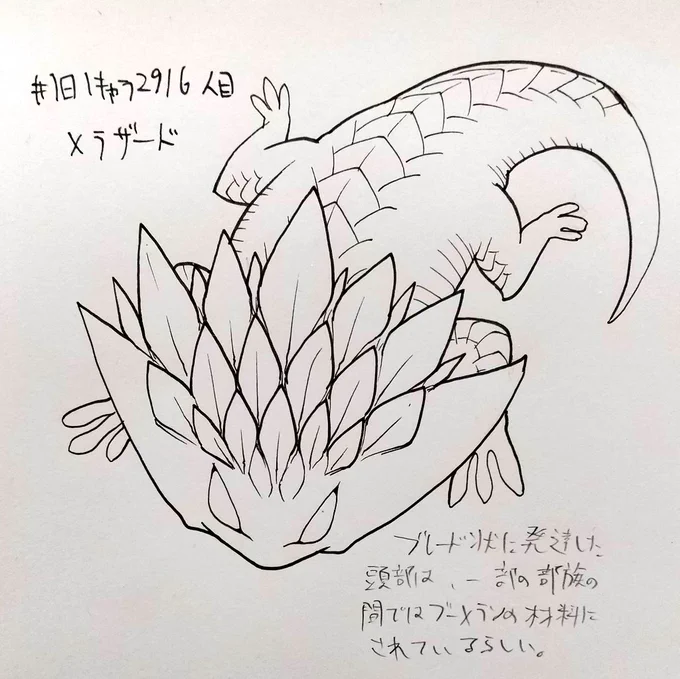 #1日1きゅう2916人目
メラザード
ブレード状に発達した
頭部は、一部の部族の
間ではブーメランの材料に
されているらしい。